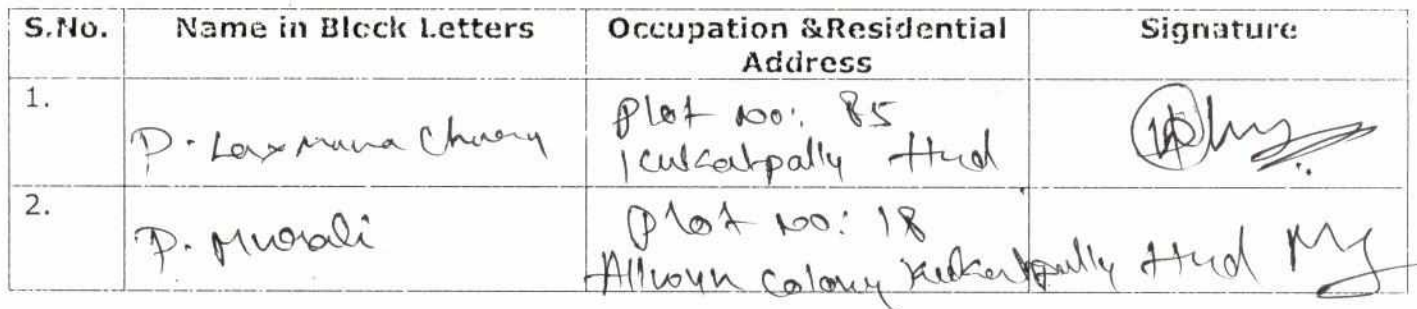 S.No. Name in Block Letters Occupation &Residential Address Signature
1. P. Laxmana Chary Plot No: 85
Kukatpally Hyd
2. P. Murali Plot No: 18
Allwyn Colony Kukatpally Hyd